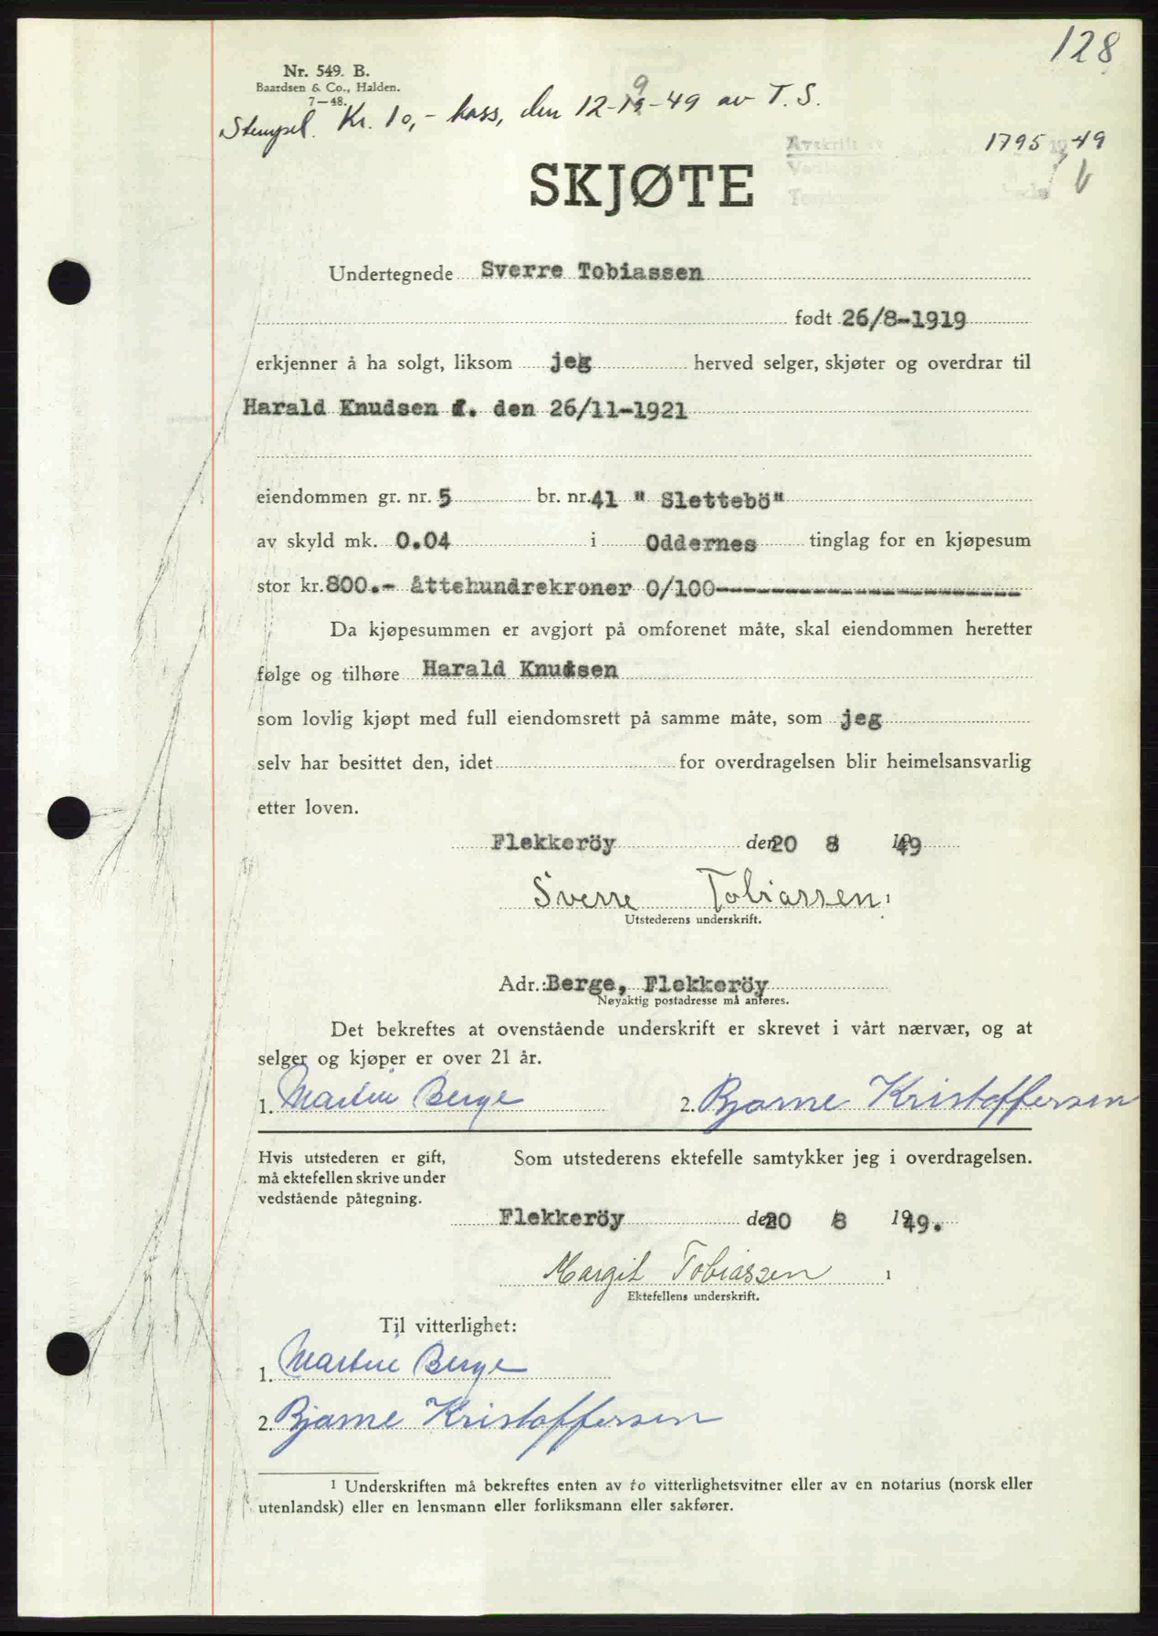 128
Nr. 549. B.
Baardsen & Co., Halden.
7—48.
Stempel. Kr. 10,- kass, den 12-9-49 av T. S.
1795 49
SKJØTE
Undertegnede Sverre Tobiassen
født 26/8-1919
erkjenner å ha solgt, liksom jeg herved selger, skjøter og overdrar til
Harald Knudsen f. den 26/11-1921
eiendommen gr. nr. 5 br. nr. 41 " Slettebö"
av skyld mk. 0.04 i Oddernes tinglag for en kjøpesum
stor kr. 800.- åttehundrekroner 0/100--------------------
Da kjøpesummen er avgjort på omforenet måte, skal eiendommen heretter
følge og tilhøre Harald Knudsen
som lovlig kjøpt med full eiendomsrett på samme måte, som jeg
selv har besittet den, idet for overdragelsen blir heimelsansvarlig
etter loven.
Flekkeröy den 20 8 1949
Sverre Tobiassen 1
Utstederens underskrift.
Adr.: Berge, Flekkeröy
Nøyaktig postadresse må anføres.
Det bekreftes at ovenstående underskrift er skrevet i vårt nærvær, og at
selger og kjøper er over 21 år.
1. Martin Berge 2. Bjarne Kristoffersen
Hvis utstederen er gift,
må ektefellen skrive under
vedstående påtegning.
Som utstederens ektefelle samtykker jeg i overdragelsen.
Flekkeröy den 20 8 1949.
Margit Tobiassen 1
Ektefellens underskrift.
Til vitterlighet:
1. Martin Berge
2. Bjarne Kristoffersen
1 Underskriften må bekreftes enten av to vitterlighetsvitner eller av en notarius (norsk eller
utenlandsk) eller en lensmann eller forliksmann eller sakfører.